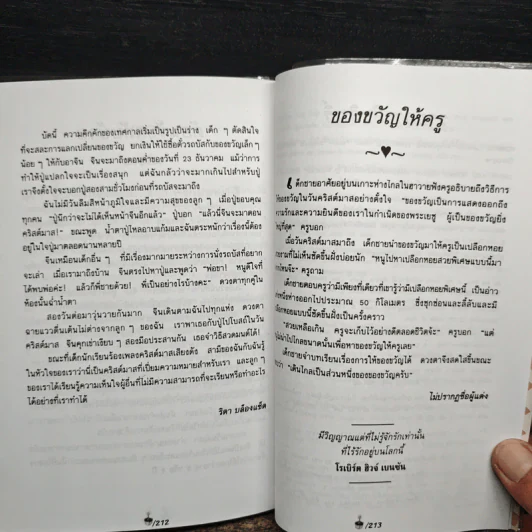 บัดนี้ ความคึกคักของเทศกาลเริ่มเป็นรูปเป็นร่าง เด็ก ๆ ตัดสินใจ
ที่จะสละการแลกเปลี่ยนของขวัญ ยกเงินให้ใช้ซื้อตั๋วรถบัสกับของขวัญเล็ก ๆ
น้อย ๆ ให้กับอาจีน จีนจะมาถึงตอนค่ำของวันที่ 23 ธันวาคม แม้ว่าการ
ทำให้ปู่แปลกใจจะเป็นเรื่องสนุก แต่ฉันกลัวว่าจะมากเกินไปสำหรับปู่
เราจึงตั้งใจจะบอกปู่สองสามชั่วโมงก่อนที่รถบัสจะมาถึง
ฉันไม่มีวันลืมสีหน้าภูมิใจและมีความสุขของลูก ๆ เมื่อปู่ขอบคุณ
ทุกคน "ปู่นึกว่าจะไม่ได้เห็นหน้าจีนอีกแล้ว" ปู่บอก "แล้วนี่จีนจะมาตอน
คริสต์มาส!" ขณะพูด น้ำตาปู่ไหลอาบแก้มและฉันตระหนักว่าเรื่องนี้ต้อง
อยู่ในใจปู่มาตลอดนานหลายปี
จีนเหมือนเด็กอื่น ๆ ที่มีเรื่องมากมายระหว่างการนั่งรถบัสที่อยาก
จะเล่า เมื่อเรามาถึงบ้าน จีนตรงไปหาปู่และพูดว่า "พ่อขา! หนูดีใจที่
ได้พบพ่อค่ะ! แล้วก็พี่ชายด้วย! พี่เป็นอย่างไรบ้างคะ" ดวงตาทุกคู่ใน
ห้องนั้นฉ่ำน้ำตา
สองวันต่อมาวุ่นวายกันมาก จีนเดินตามฉันไปทุกแห่ง ดวงตา
ฉายแววตื่นเต้นไม่ต่างจากลูก ๆ ของฉัน เราพาเธอกับปู่ไปโบสถ์ในวัน
คริสต์มาส จีนคุกเข่าเงียบ ๆ สองมือประสานกัน เธอจำวิธีสวดมนต์ได้!
ขณะที่เด็กนักเรียนร้องเพลงคริสต์มาสเสียงดัง สามีของฉันกับฉันรู้
ในหัวใจของเราว่านี่เป็นคริสต์มาสที่เปี่ยมความหมายสำหรับเรา และลูก ๆ
ของเราได้เรียนรู้ความเห็นใจผู้อื่นที่ไม่มีความสามารถที่จะเรียนหรือทำอะไร
ได้อย่างที่เราทำได้
ริตา
/212
ของขวัญให้ครู
เด็กชายอาศัยอยู่บนเกาะห่างไกลในฮาวายฟังครูอธิบายถึงวิธีการ
ให้ของขวัญในวันคริสต์มาสอย่างตั้งใจ "ของขวัญเป็นการแสดงออกถึง
ความรักและความยินดีของเราในกำเนิดของพระเยซู ผู้เป็นของขวัญยิ่ง
ใหญ่ที่สุด" ครูบอก
เมื่อวันคริสต์มาสมาถึง เด็กชายนำของขวัญมาให้ครูเป็นเปลือกหอย
ที่ไม่เห็นชัดขึ้นฝั่งบ่อยนัก "หนูไปหาเปลือกหอยสวยพิเศษแบบนี้มา
ไหนจ๊ะ" ครูถาม
เด็กชายตอบครูว่ามีเพียงที่เดียวที่เขารู้ว่ามีเปลือกหอยพิเศษนี้ เป็นอ่าว
หนึ่งห่างออกไปประมาณ 50 กิโลเมตร ซึ่งซุกซ่อนและลี้ลับและมี
หอยแบบนี้ซัดขึ้นฝั่งเป็นครั้งคราว
"สวยเหลือเกิน ครูจะเก็บไว้อย่างดีตลอดชีวิตจ้ะ" ครูบอก "แต่
ไม่น่าไปไกลขนาดนั้นเพื่อหาของขวัญให้ครูเลย"
เด็กชายจำบทเรียนเรื่องการให้ของขวัญได้ ดวงตาจึงสดใสขึ้นขณะ
ว่า "เดินไกลเป็นส่วนหนึ่งของของขวัญครับ"
ไม่ปรากฏชื่อผู้แต่ง
มีวิญญาณแต่ที่ไม่รู้จักรักเท่านั้น
ที่ไร้รักอยู่บนโลกนี้
โรเบิร์ต ฮิวจ์ เบนซัน
/213